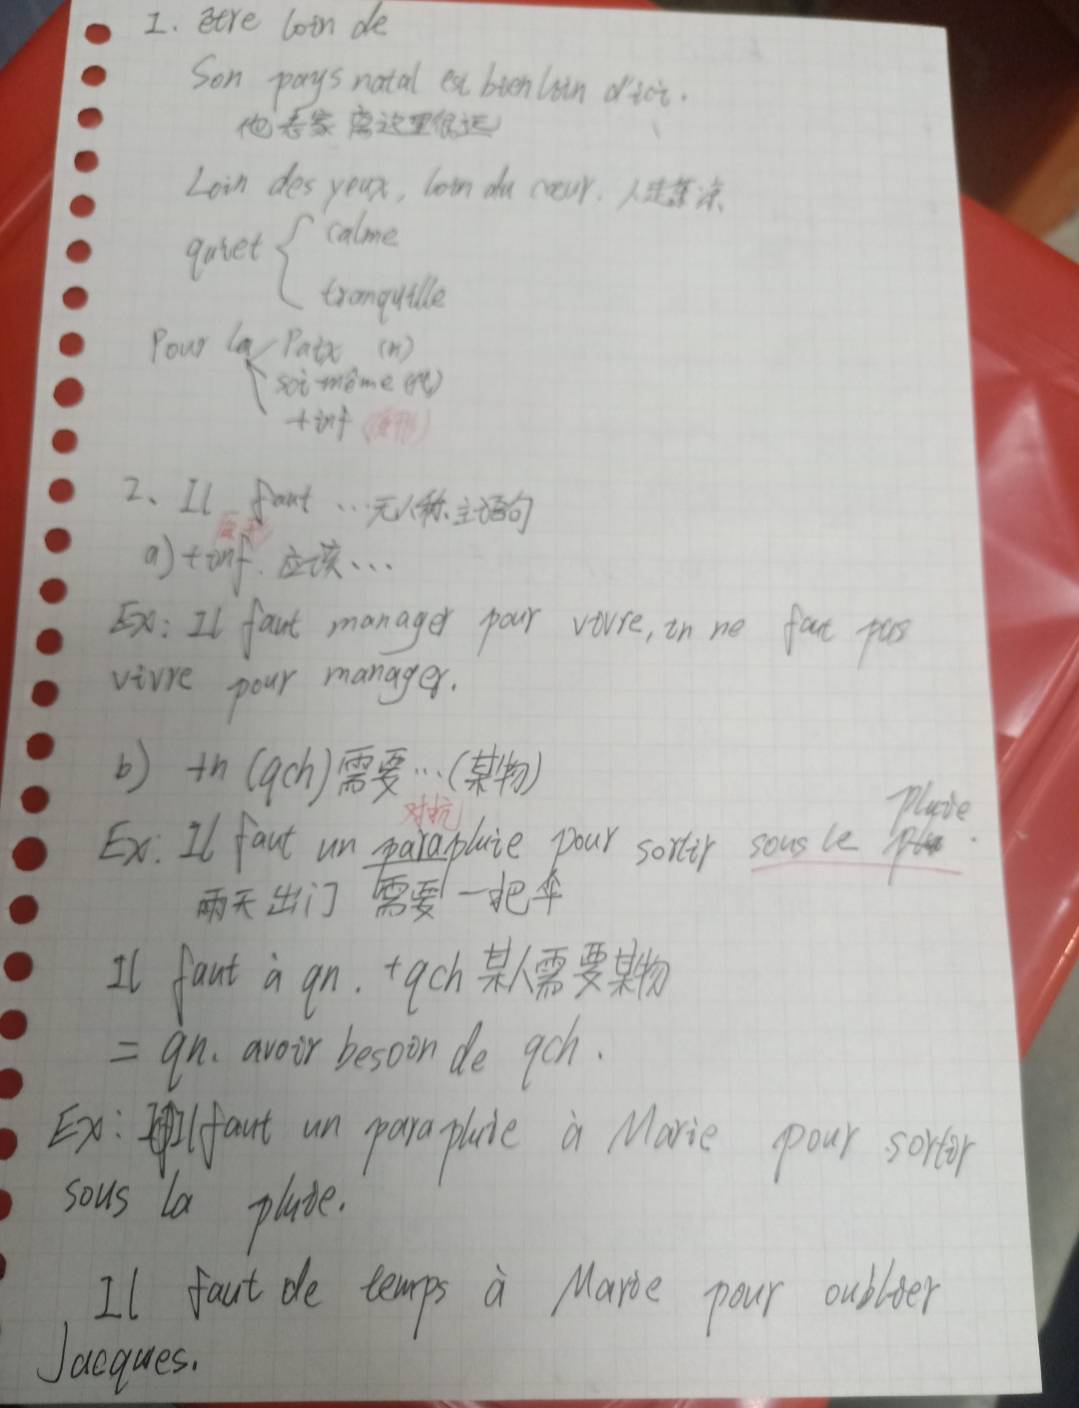 1. être loin de
Son pays natal est bien loin d'ici.
他老家离这里很远
Loin des yeux, loin du cœur. 人走茶凉
quiet { calme
tranquille
Pour la Paix (n)
soi-même (n)
+inf (原形)
2、Il faut ...无人称主语句
原形
a) +inf. 应该...
Ex: Il faut manager pour vivre, in ne faut pas
vivre pour manager.
b) +n (qch) 需要...(某物)
对抗 pluie
Ex: Il faut un parapluie pour sortir sous le plu.
雨天出门 需要一把伞
Il faut à qn. +qch 某人需要某物
= qn. avoir besoin de qch.
Ex: Il faut un parapluie à Marie pour sortir
sous la pluie.
Il faut de temps à Marie pour oublier
Jacques.